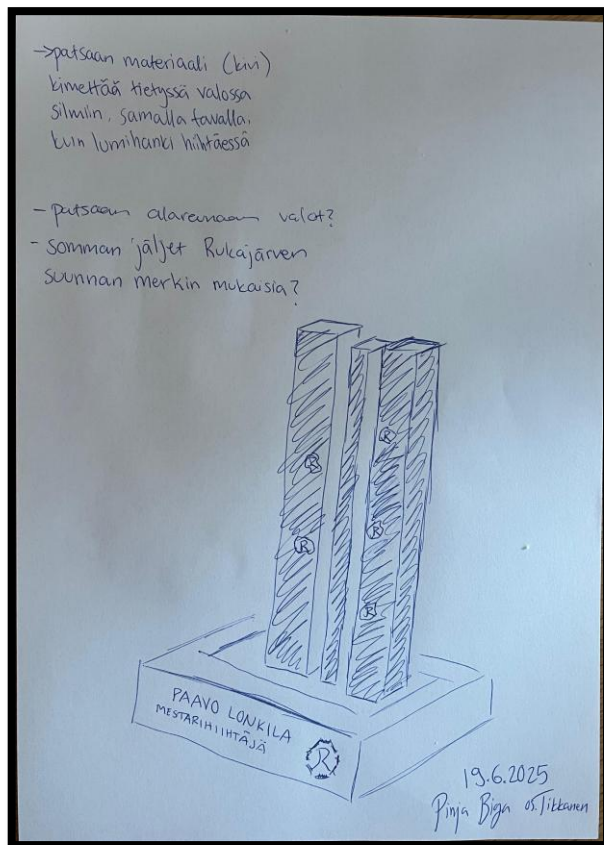 →patsaan materiaali (kivi)
kimeltää tietyssä valossa
silmiin, samalla tavalla,
kuin lumihanki hiihtäessä
- patsaan alareunaan valot?
- somman jäljet Rukajärven
suunnan merkin mukaisia?
R
R
R
R
R
PAAVO LONKILA
MESTARIHIIHTÄJÄ
R
19.6.2025
Pinja Biga os. Tikkanen